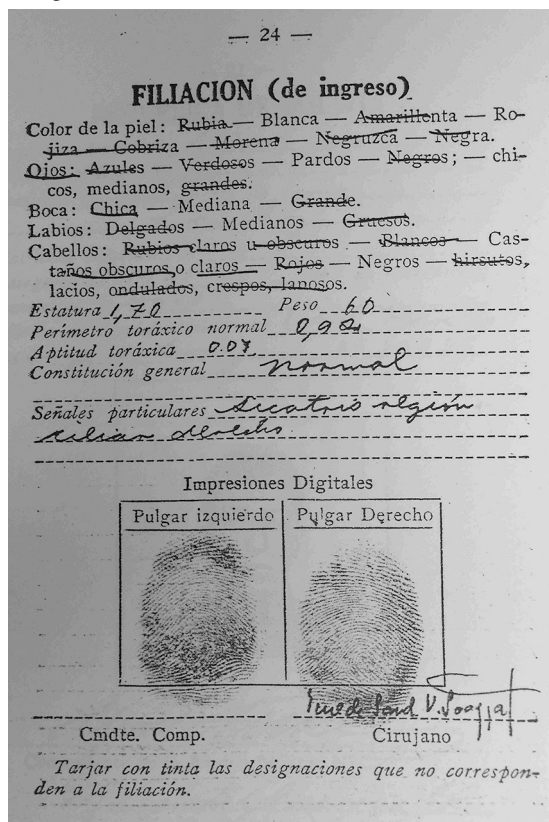 — 24 —
FILIACION (de ingreso)
Color de la piel: Rubia — Blanca — Amarillenta — Ro-
jiza — Cobriza — Morena — Negruzca — Negra.
Ojos: Azules — Verdosos — Pardos — Negros; — chi-
cos, medianos, grandes.
Boca: Chica — Mediana — Grande.
Labios: Delgados — Medianos — Gruesos.
Cabellos: Rubios claros u obscuros — Blancos — Cas-
taños obscuros o claros — Rojos — Negros — hirsutos,
lacios, ondulados, crespos, lanosos.
Estatura 1,70 Peso 60
Perímetro toráxico normal
Aptitud toráxica 0.07
Constitución general normal
Señales particulares región
Impresiones Digitales
Pulgar izquierdo Pulgar Derecho
Cmdte. Comp. Cirujano
Tarjar con tinta las designaciones que no correspon-
den a la filiación.